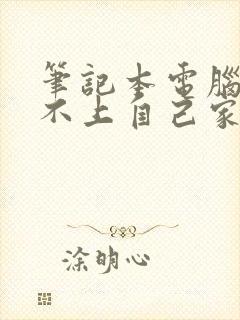 筆記本電腦
不上自己家
涂明心